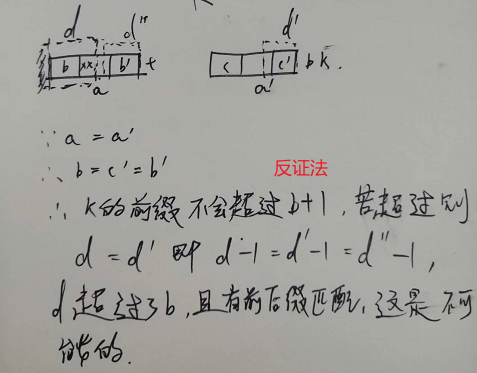 d d" d'
b xx b' t c c' b k.
a a'
∵ a = a'
∴ b = c' = b'
反证法
∴ K的前缀不会超过b+1，若超过则
d = d' 即 d-1 = d'-1 = d"-1，
d超过了b，且有前后缀匹配，这是不可
能的.